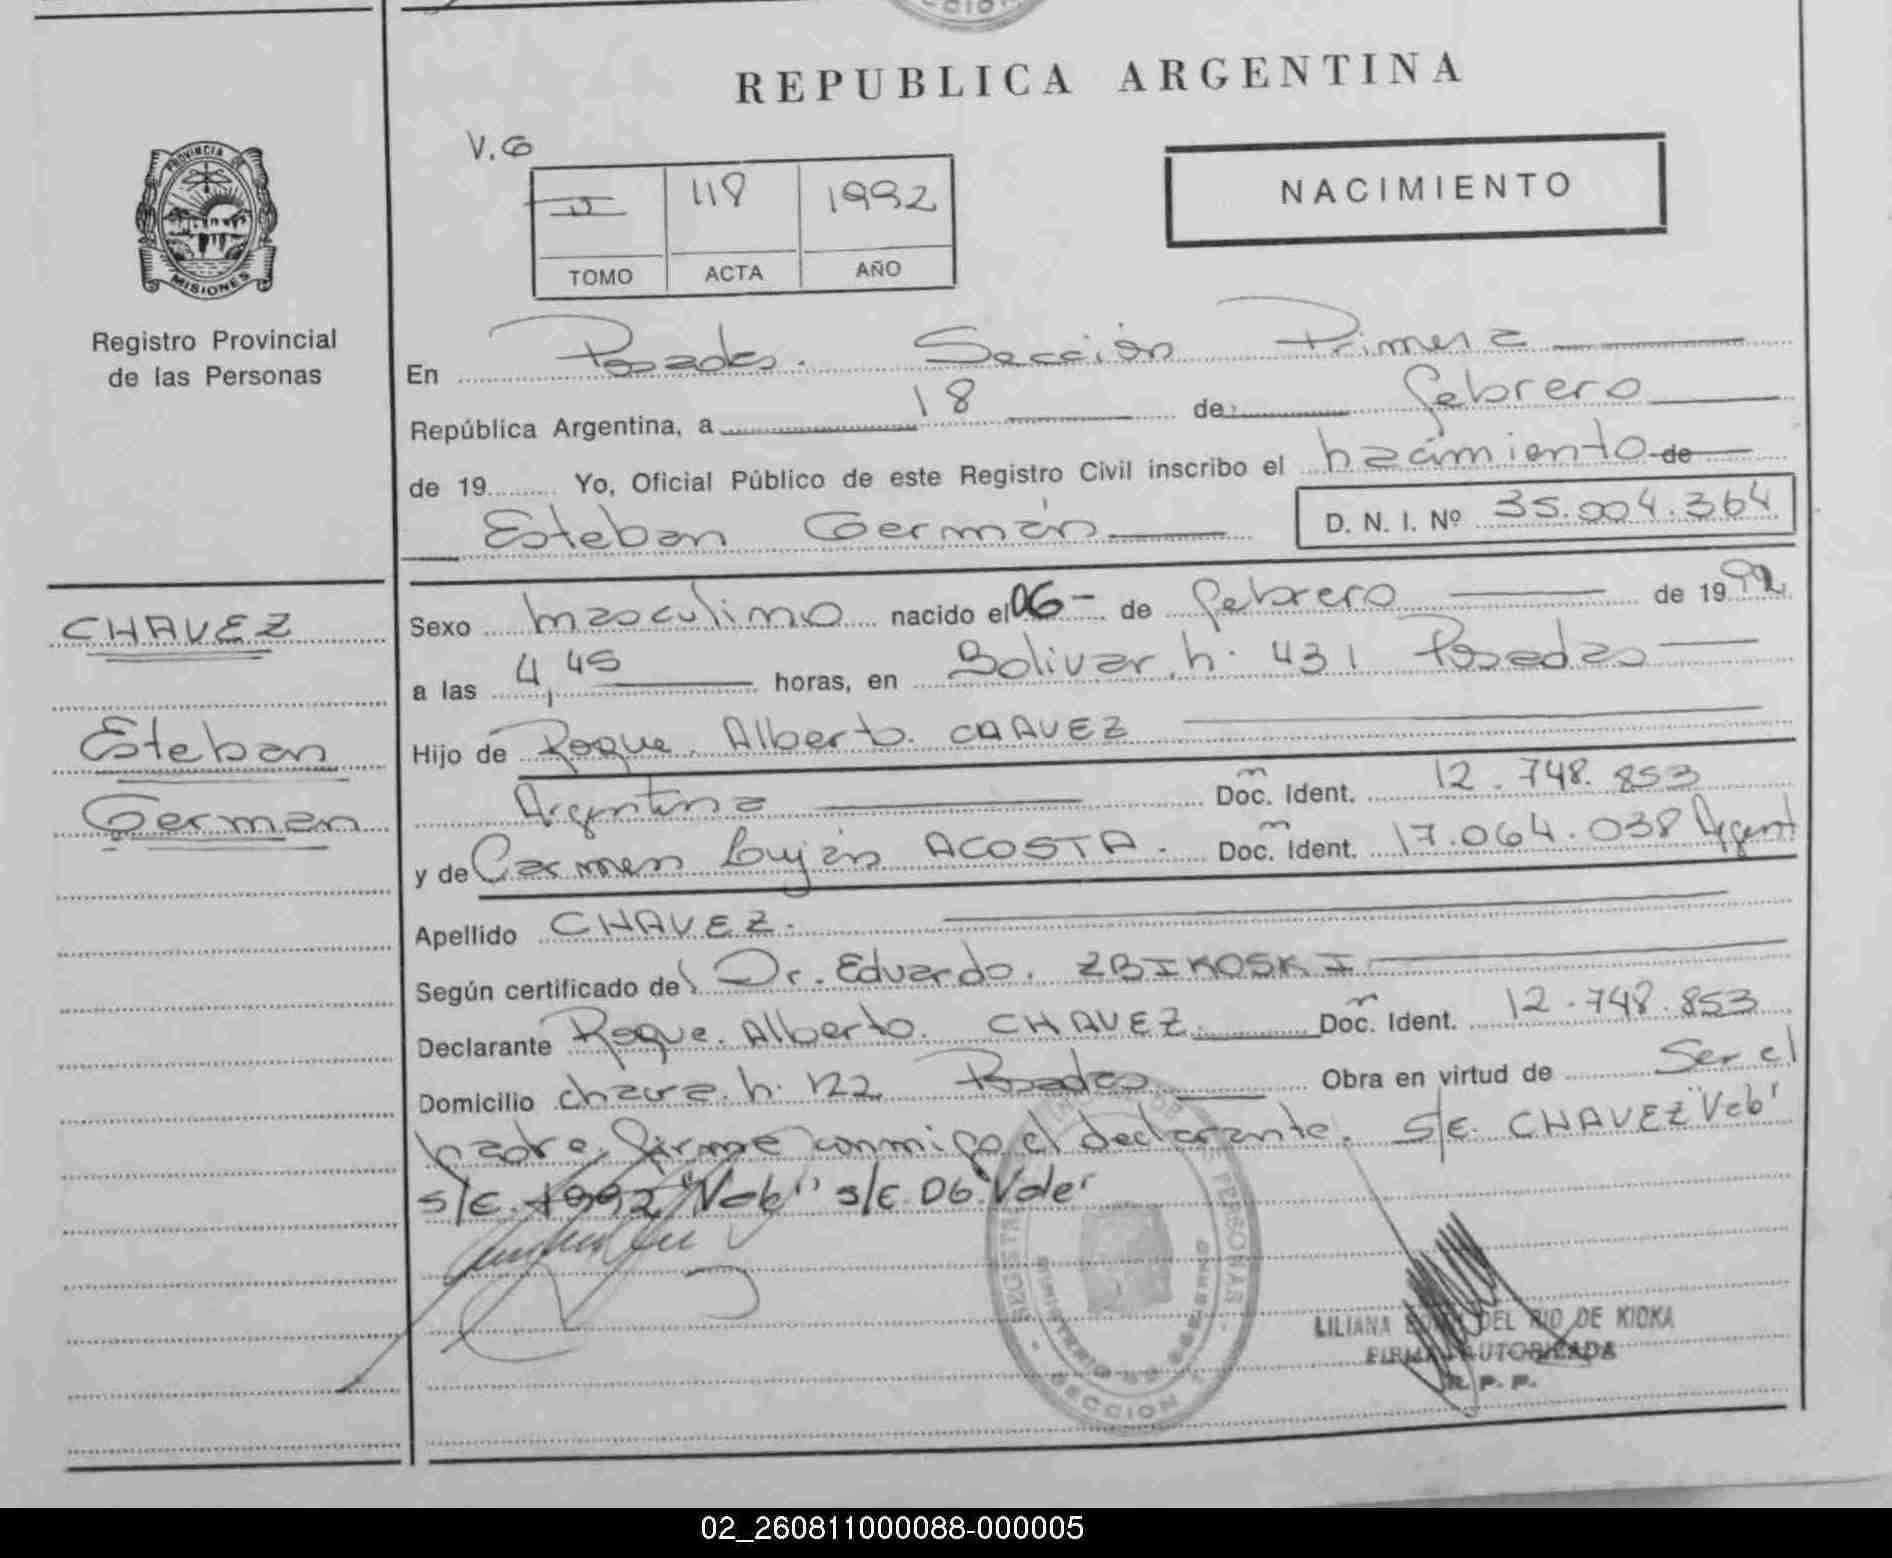 REPUBLICA ARGENTINA
V.G
PROVINCIA DE
MISIONES
Registro Provincial
de las Personas
II 118 1992
TOMO ACTA AÑO
NACIMIENTO
En Posadas. Sección Primera
República Argentina, a 18 de febrero
de 19 Yo, Oficial Público de este Registro Civil inscribo el nacimiento de
Esteban Germán D. N. I. Nº 35.004.364
CHAVEZ
Esteban
German
Sexo masculino nacido el 06- de febrero de 1992
a las 4,45 horas, en Bolivar n. 431 Posadas
Hijo de Roque Alberto CHAVEZ
Argentina Doc. Ident. 12.748.853
y de Carmen Luján ACOSTA. Doc. Ident. 17.064.038 Argent
Apellido CHAVEZ.
Según certificado del Dr. Eduardo. ZBIKOSKI
Declarante Roque Alberto CHAVEZ Doc. Ident. 12.748.853
Domicilio chacra. n. 122 Posadas Obra en virtud de Ser el
padre, firma conmigo el declarante. S/E. CHAVEZ "Vale"
s/E. 1992 "Vale" s/E. 06 "Vale"
LILIANA DEL RIO DE KIOKA
FIRMA AUTORIZADA
R. P. P.
SECCION
02_260811000088-000005